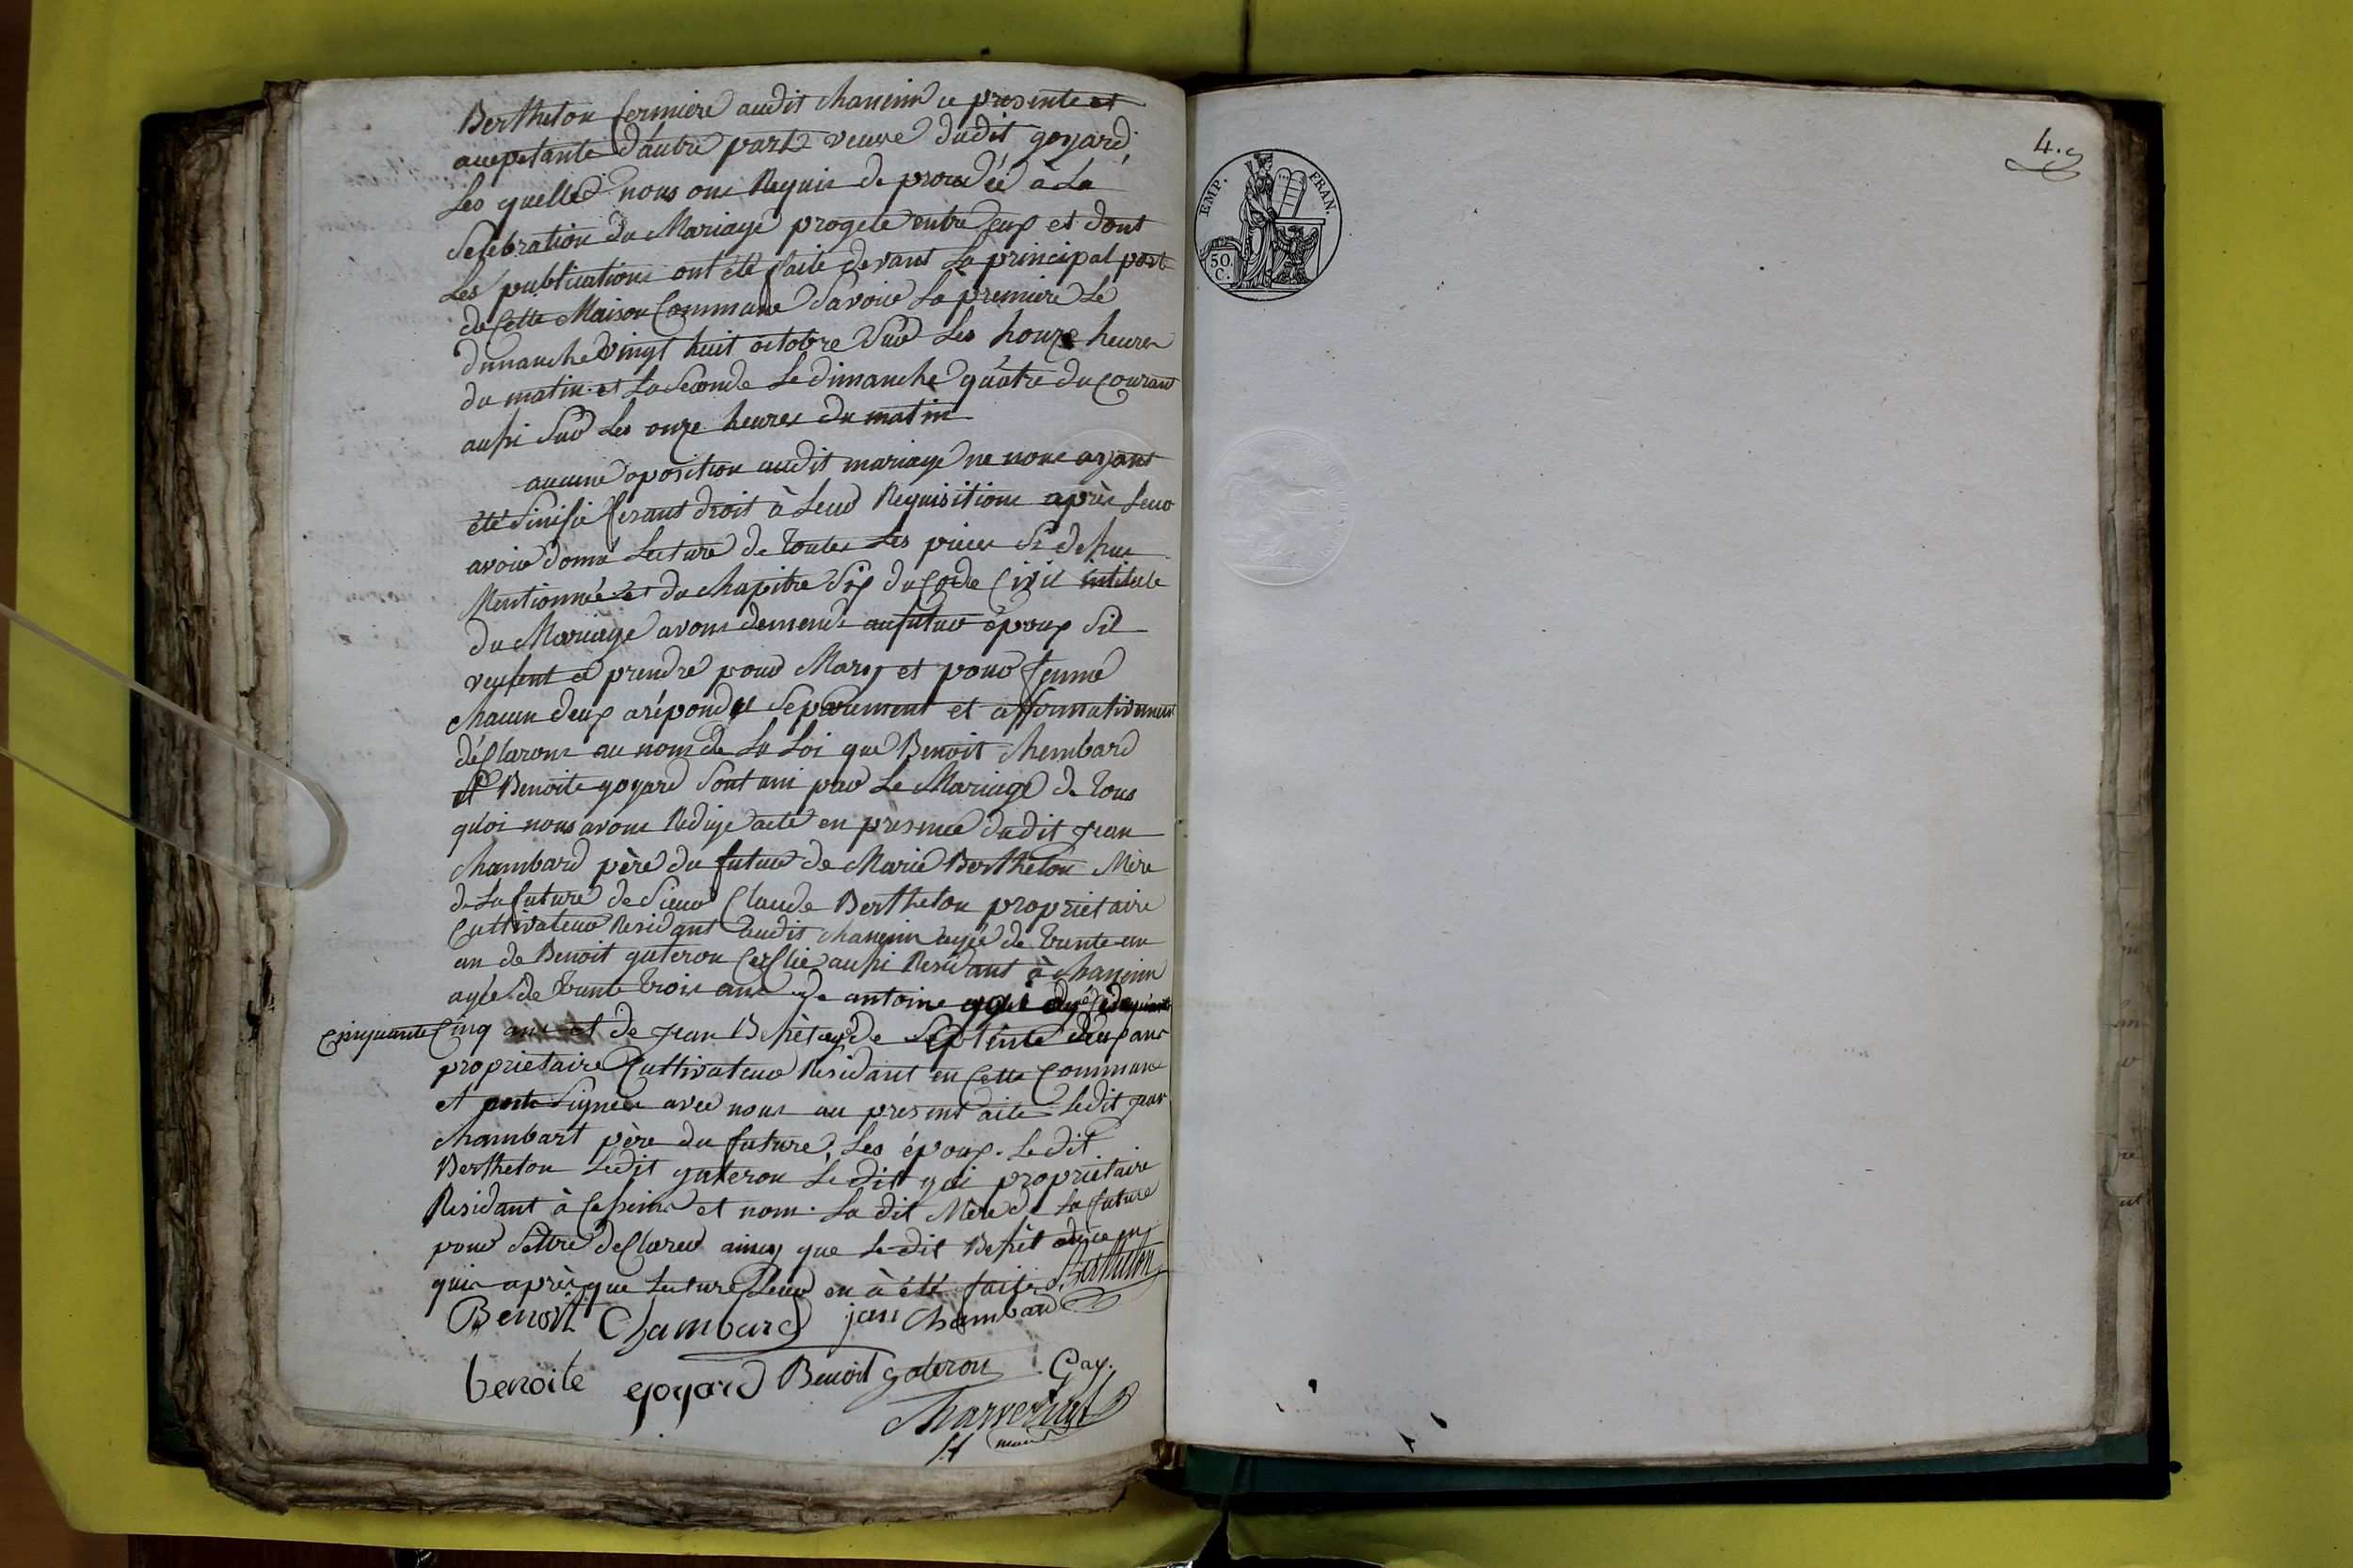 Berthelon fermiere audit chaneins ce presente et
acceptante d'autre part veuve dudit goyard,
Les quelles nous ons Requis de procedée à La
Selebration du Mariage progete entre eux et dont
Les publications ont été faite devant La principal porte
de Cette Maison Commune Savoir La premiere Le
dimanche vingt huit octobre Sur Les honze heures
du matin et La Seconde Le dimanche quatre du Courant
aussi Sur Les onze heures du matin
aucune oposition audit mariage ne nous ayant
été Sinifié fesant droit à Leur Requisitions après Leur
avoir donné Lecture de toutes Les pieces Si dessus
Mentionnée et du chapitre Six du Code Civil intitule
du Mariage avons demende au futur époux Sil
veulent ce prendre pour Mary et pour femme
chacun deux a répondu Separement et affirmativement
déClarons au nom de La Loi que Benoit Chembard
et Benoite goyard Sont uni par Le Mariage de tous
quoi nous avons Redige acte en presence dudit Jean
Chambard père du futur de Marie Berthelon Mère
de La future de Sieur Claude Berthelon proprietaire
Cultivateur Residant audit chaneins agée de trente un
an de Benoit guteron Residant à chaneins
agée de trente trois ans de antoine
Cinquante Cinq ans et de Jean de Septente deux ans
proprietaire Cultivateur Residant en Cette Commune
et Signée avec nous au present acte Ledit
Chambart père du future, Les époux. Le dit
Berthelon Ledit guteron Le dit proprietaire
Residant à et nom. La dit Mère de La future
pour Settre deClarer ainsy que Le dit
quis après que Lecture Leur en à été faite Berthelon
Benoit Chambard jan Chambard
benoite goyard Benoit goteron Gay.